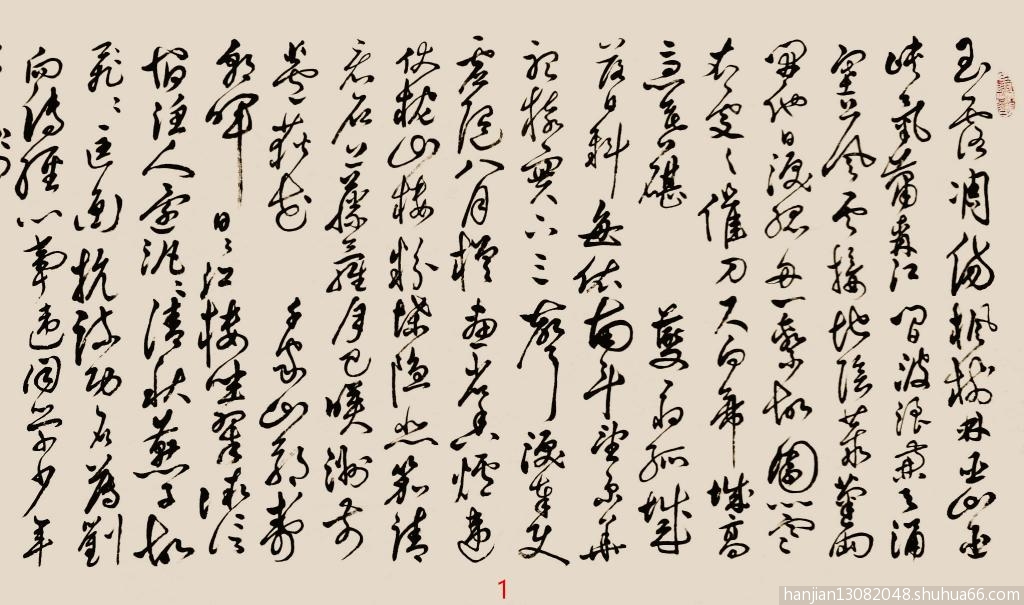 玉露凋伤枫树林巫山巫
峡气萧森江间波浪兼天涌
塞上风云接地阴丛菊两
开他日泪孤舟一系故园心寒
衣处处催刀尺白帝城高
急暮砧 夔府孤城
落日斜每依南斗望京华
听猿实下三声泪奉使
虚随八月槎画省香炉违
伏枕山楼粉堞隐悲笳请
看石上藤萝月已映洲前
芦荻花 千家山郭静
朝晖 日日江楼坐翠微信
宿渔人还泛泛清秋燕子故
飞飞匡衡抗疏功名薄刘
向传经心事违同学少年
1
hanjian13082048.shuhua66.com